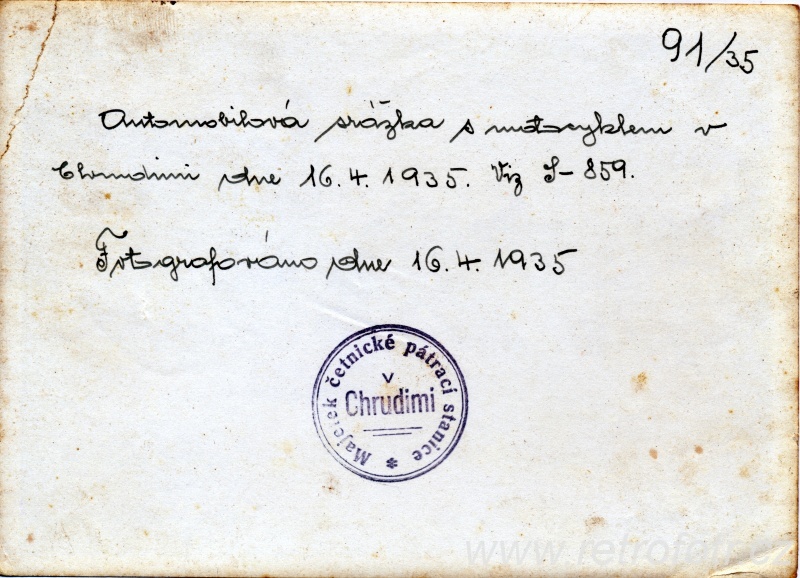 91/35
Automobilová srážka s motocyklem v
Chrudimi dne 16.4.1935. Viz S-859.
Fotografováno dne 16.4.1935
Majetek četnické pátrací stanice
v
Chrudimi
*